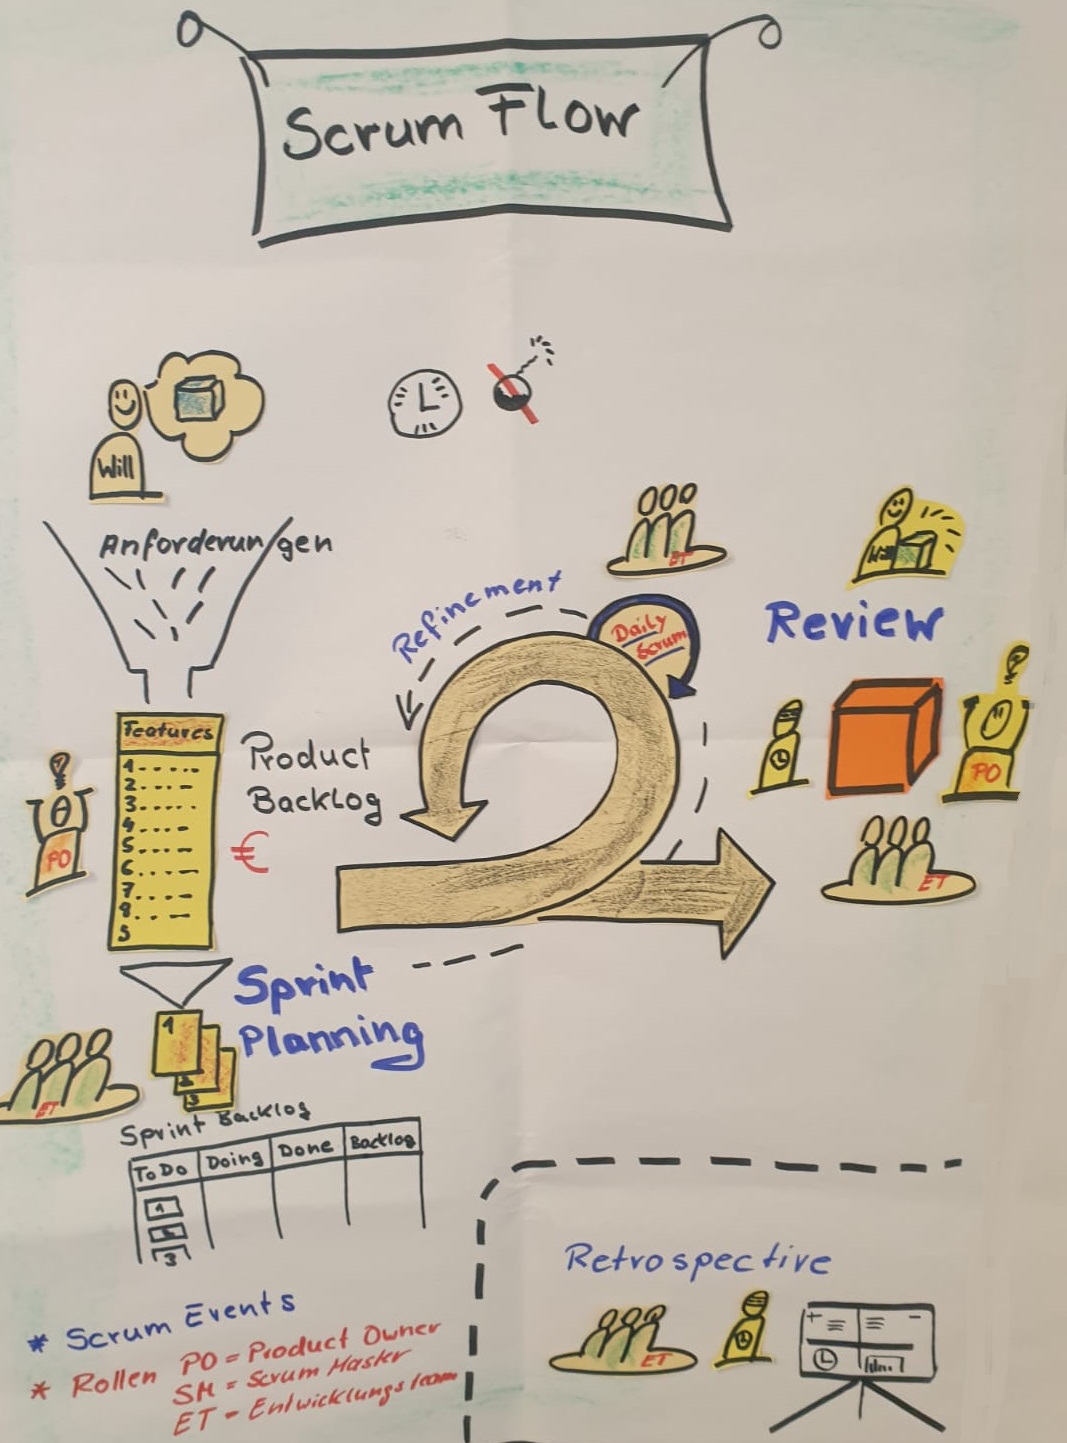 Scrum Flow
Will
Anforderungen
Refinement
ET
Daily
Scrum
Will
Review
Features
1
2
3
4
5
6
7
8
9
Product
Backlog
€
PO
PO
ET
Sprint
Planning
1
2
3
ET
Sprint Backlog
To Do Doing Done Backlog
1
2
3
Retrospective
ET
* Scrum Events
* Rollen PO = Product Owner
SM = Scrum Master
ET = Entwicklungsteam